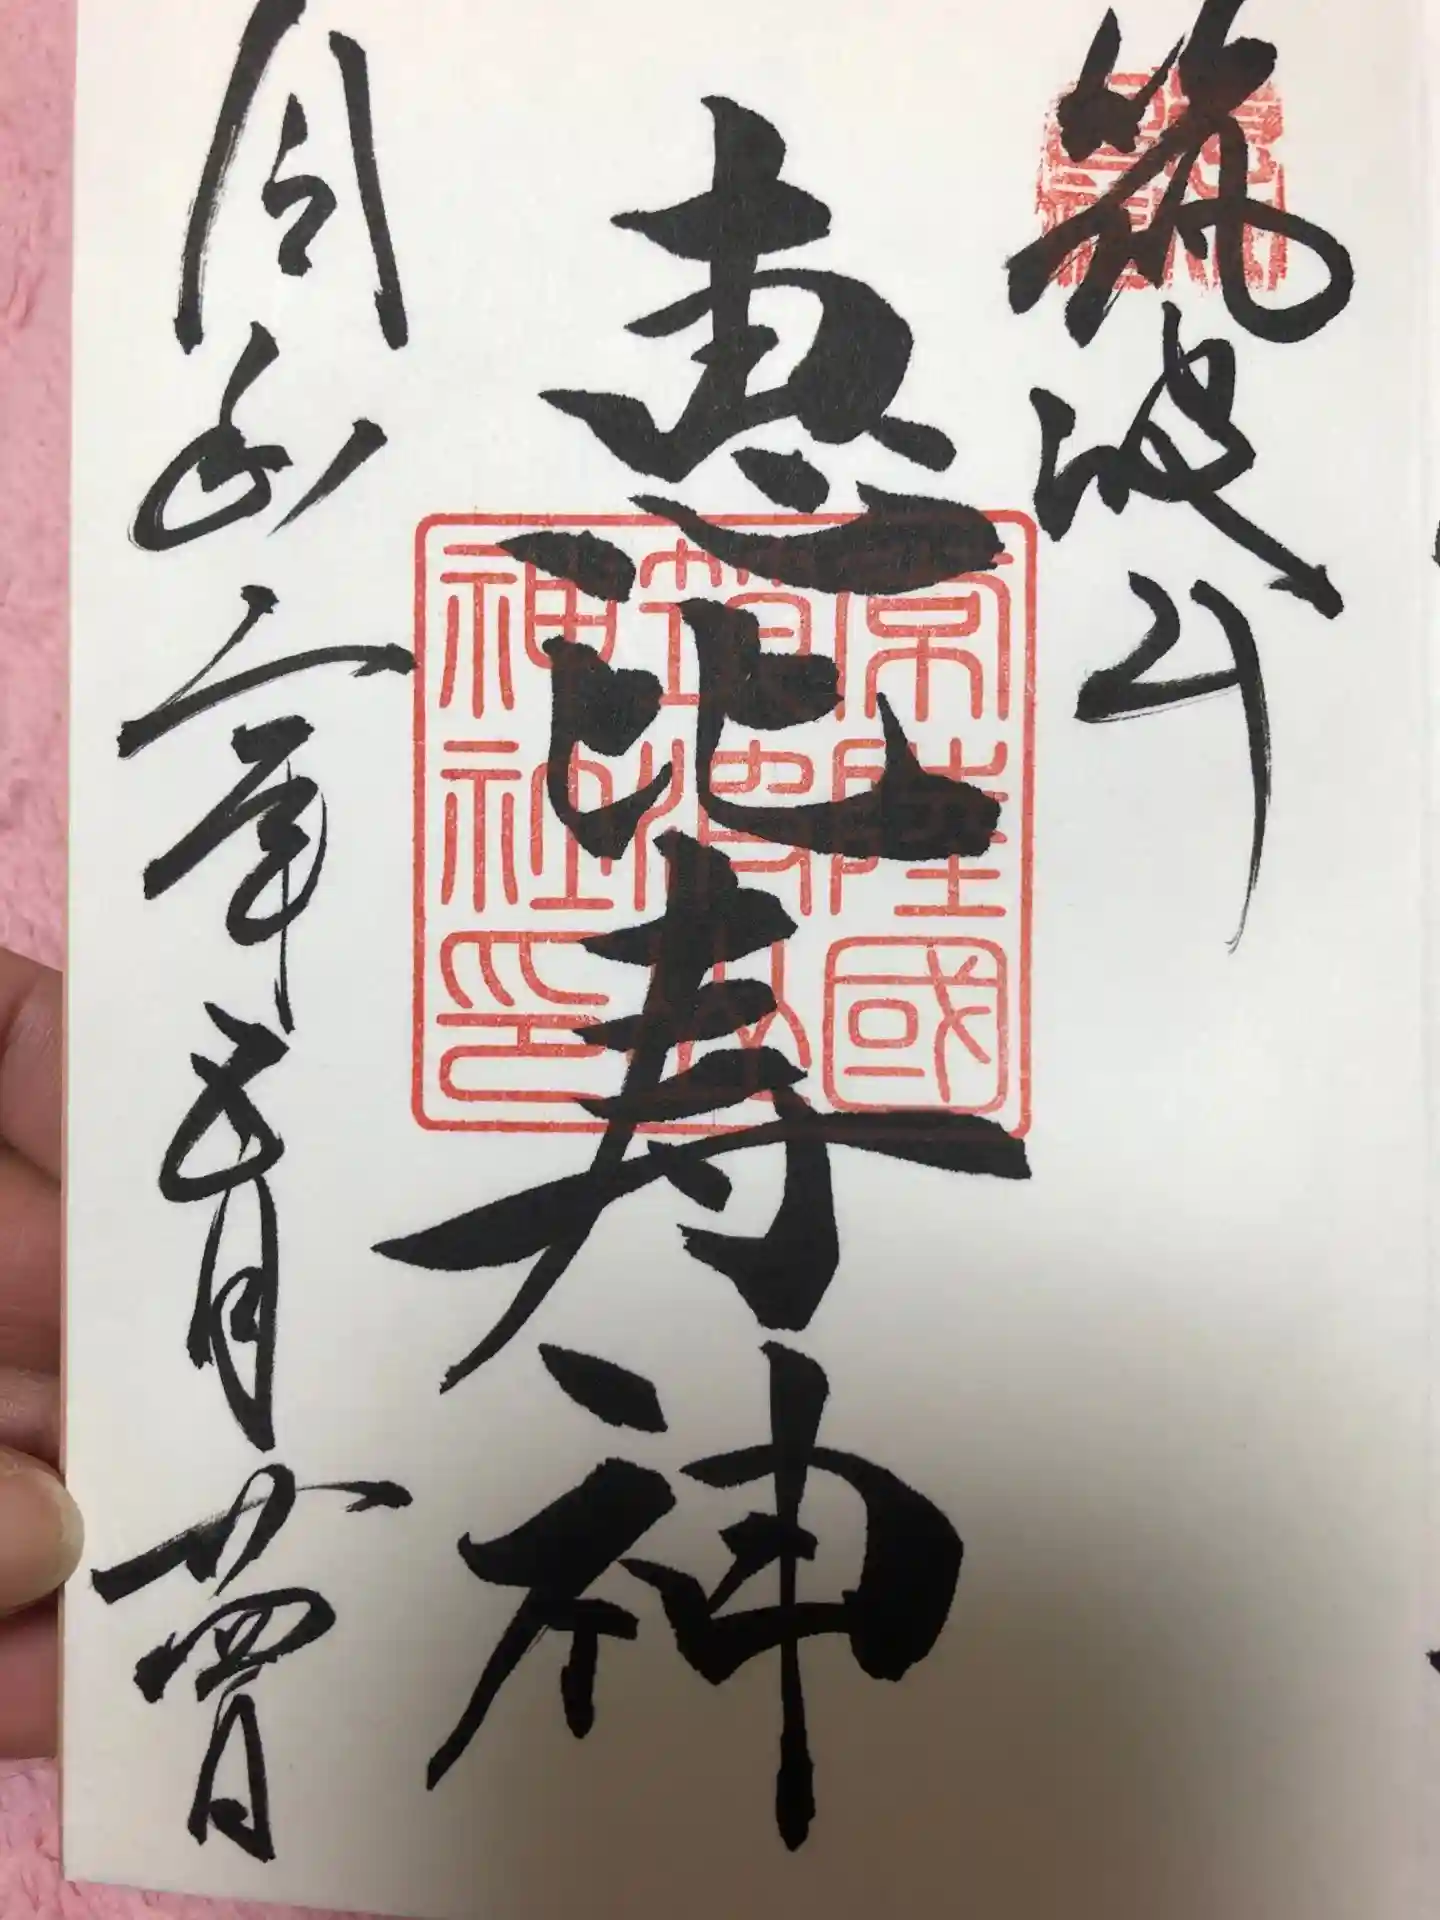 筑波山
恵比寿神
令和二年五月廿四日
常陸國
筑波山
神社印